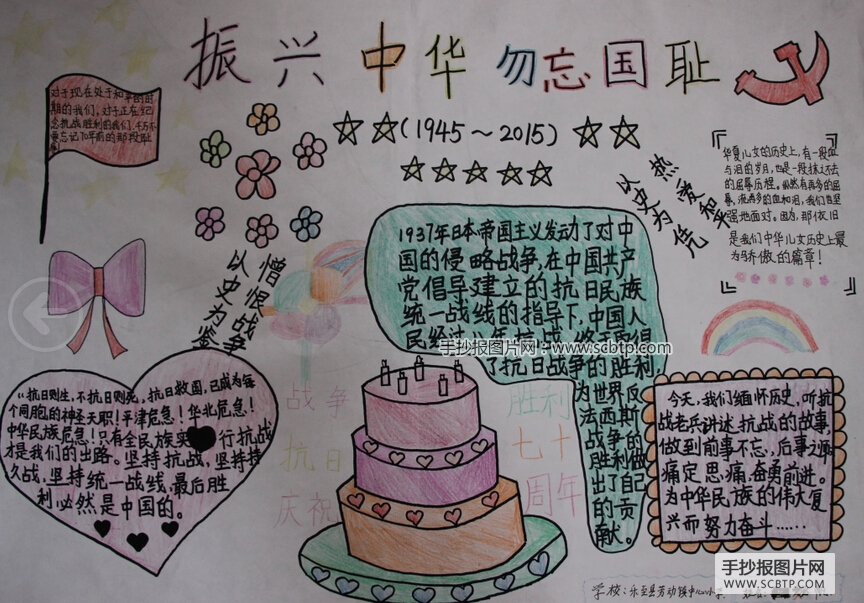 振兴中华 勿忘国耻
(1945～2015)
对于现在处于和平时
期的我们，对于正在纪
念抗战胜利的我们，千万不
要忘记70年前的那段耻
热爱和平
以史为凭
华夏儿女的历史上，有一段血
与泪的岁月，也是一段抹不去
的屈辱历程。
强地面对。因为，那依旧
是我们中华儿女历史上最
为骄傲的篇章！
憎恨战争
以史为鉴
1937年日本帝国主义发动了对中
国的侵略战争，在中国共产
党倡导建立的抗日民族
统一战线的指导下，中国人
民经过八年抗战，终于取得
了抗日战争的胜利，
为世界反
法西斯
战争的
胜利做
出了自己
的贡
献。
手抄报图片网：www.scbtp.com
"抗日则生，不抗日则死，抗日救国，已成为每
个同胞的神圣天职！平津危急！华北危急！
中华民族危急！只有全民族实行抗战
才是我们的出路。坚持抗战，坚持持
久战，坚持统一战线，最后胜
利必然是中国的。
战争 胜利
抗日 七十
庆祝 周年
今天，我们缅怀历史，听抗
战老兵讲述抗战的故事，
做到前事不忘，后事之师
痛定思痛，奋勇前进。
为中华民族的伟大复
兴而努力奋斗……
学校：乐至县劳动镇中心小学
手抄报图片网
WWW.SCBTP.COM